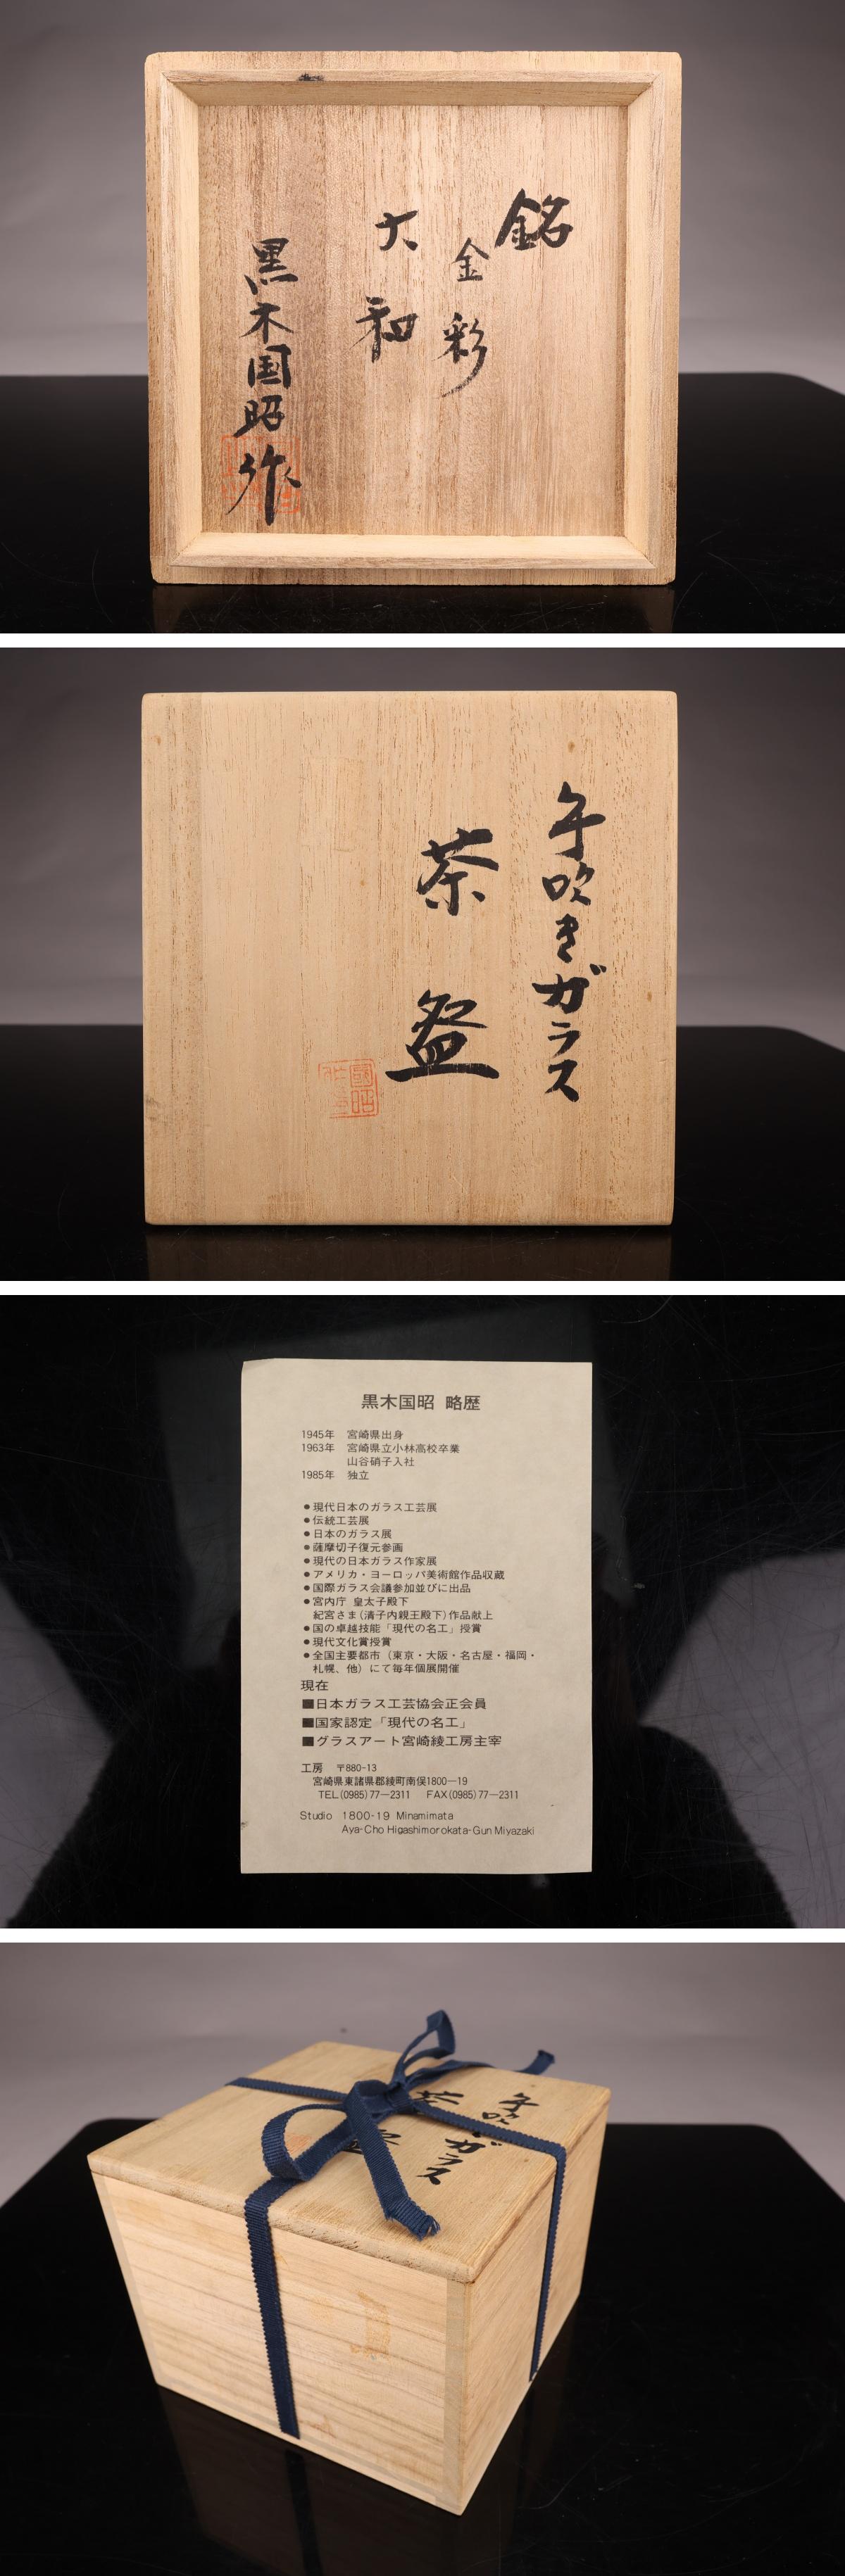 銘
金彩
大和
黒木国昭作
手吹きガラス
茶盌
國昭
黒木国昭 略歴
1945年 宮崎県出身
1963年 宮崎県立小林高校卒業
山谷硝子入社
1985年 独立
●現代日本のガラス工芸展
●伝統工芸展
●日本のガラス展
●薩摩切子復元参画
●現代の日本ガラス作家展
●アメリカ・ヨーロッパ美術館作品収蔵
●国際ガラス会議参加並びに出品
●宮内庁 皇太子殿下
紀宮さま(清子内親王殿下)作品献上
●国の卓越技能「現代の名工」授賞
●現代文化賞授賞
●全国主要都市(東京・大阪・名古屋・福岡・
札幌、他)にて毎年個展開催
現在
■日本ガラス工芸協会正会員
■国家認定「現代の名工」
■グラスアート宮崎綾工房主宰
工房 〒880-13
宮崎県東諸県郡綾町南俣1800―19
TEL(0985)77―2311 FAX(0985)77―2311
Studio 1800-19 Minamimata
Aya-Cho Higashimorokata-Gun Miyazaki
手吹きガラス
茶盌